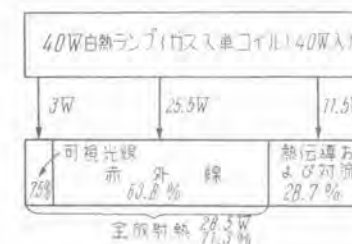 40W白熱ランプ(ガス入単コイル)40W入
3W 25.5W 11.5
可視光線
7.5% 赤外線 63.8%
熱伝導お
よび対流
28.7%
全放射熱 28.5W
71.3%